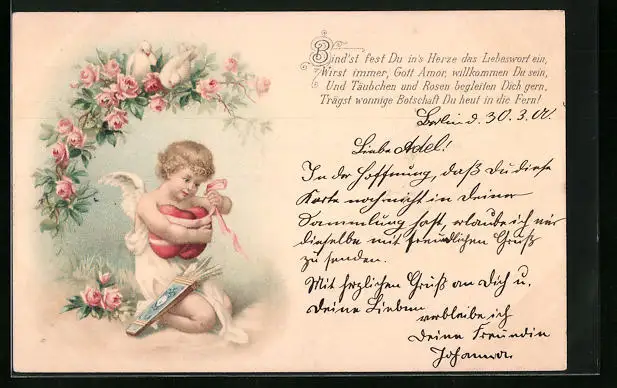 Bind'st fest Du in's Herze das Liebeswort ein,
Wirst immer, Gott Amor, willkommen Du sein,
Und Täubchen und Rosen begleiten Dich gern,
Trägst wonnige Botschaft Du heut in die Fern!
Berlin d. 30.3.01.
Liebe Adel!
In der Hoffnung, daß Du diese
Karte noch nicht in Deiner
Sammlung hast, erlaube ich mir
dieselbe mit freundlichen Gruß
zu senden.
Mit herzlichen Gruß an Dich u.
Deine Lieben
verbleibe ich
Deine Freundin
Johanna.